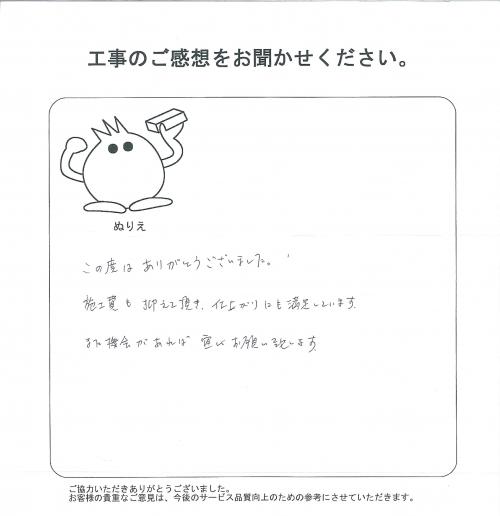 工事のご感想をお聞かせください。
ぬりえ
この度は ありがとうございました。
施工費も 抑えて頂き、仕上がりにも満足しています。
また機会があれば 宜しくお願い致します。
ご協力いただきありがとうございました。
お客様の貴重なご意見は、今後のサービス品質向上のための参考にさせていただきます。